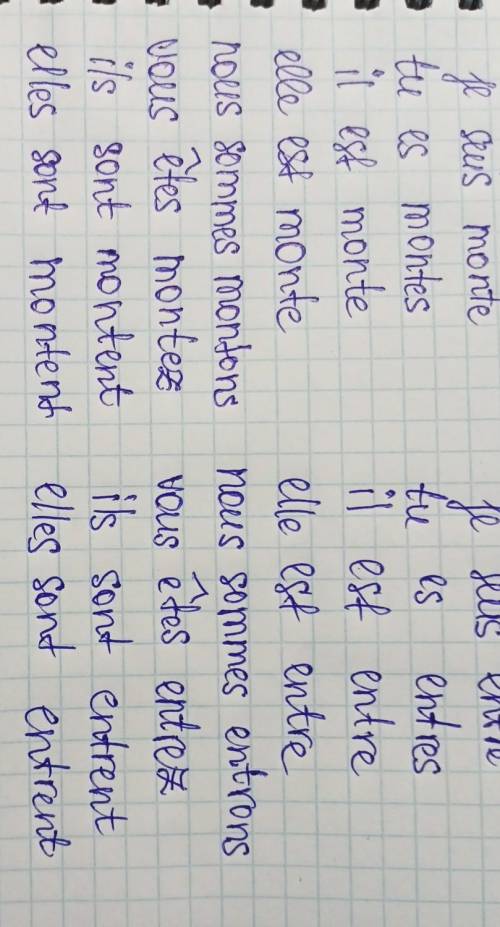 je suis monte
tu es montes
il est monte
elle est monte
nous sommes montons
vous êtes montez
ils sont montent
elles sont montent
je suis entre
tu es entres
il est entre
elle est entre
nous sommes entrons
vous êtes entrez
ils sont entrent
elles sont entrent